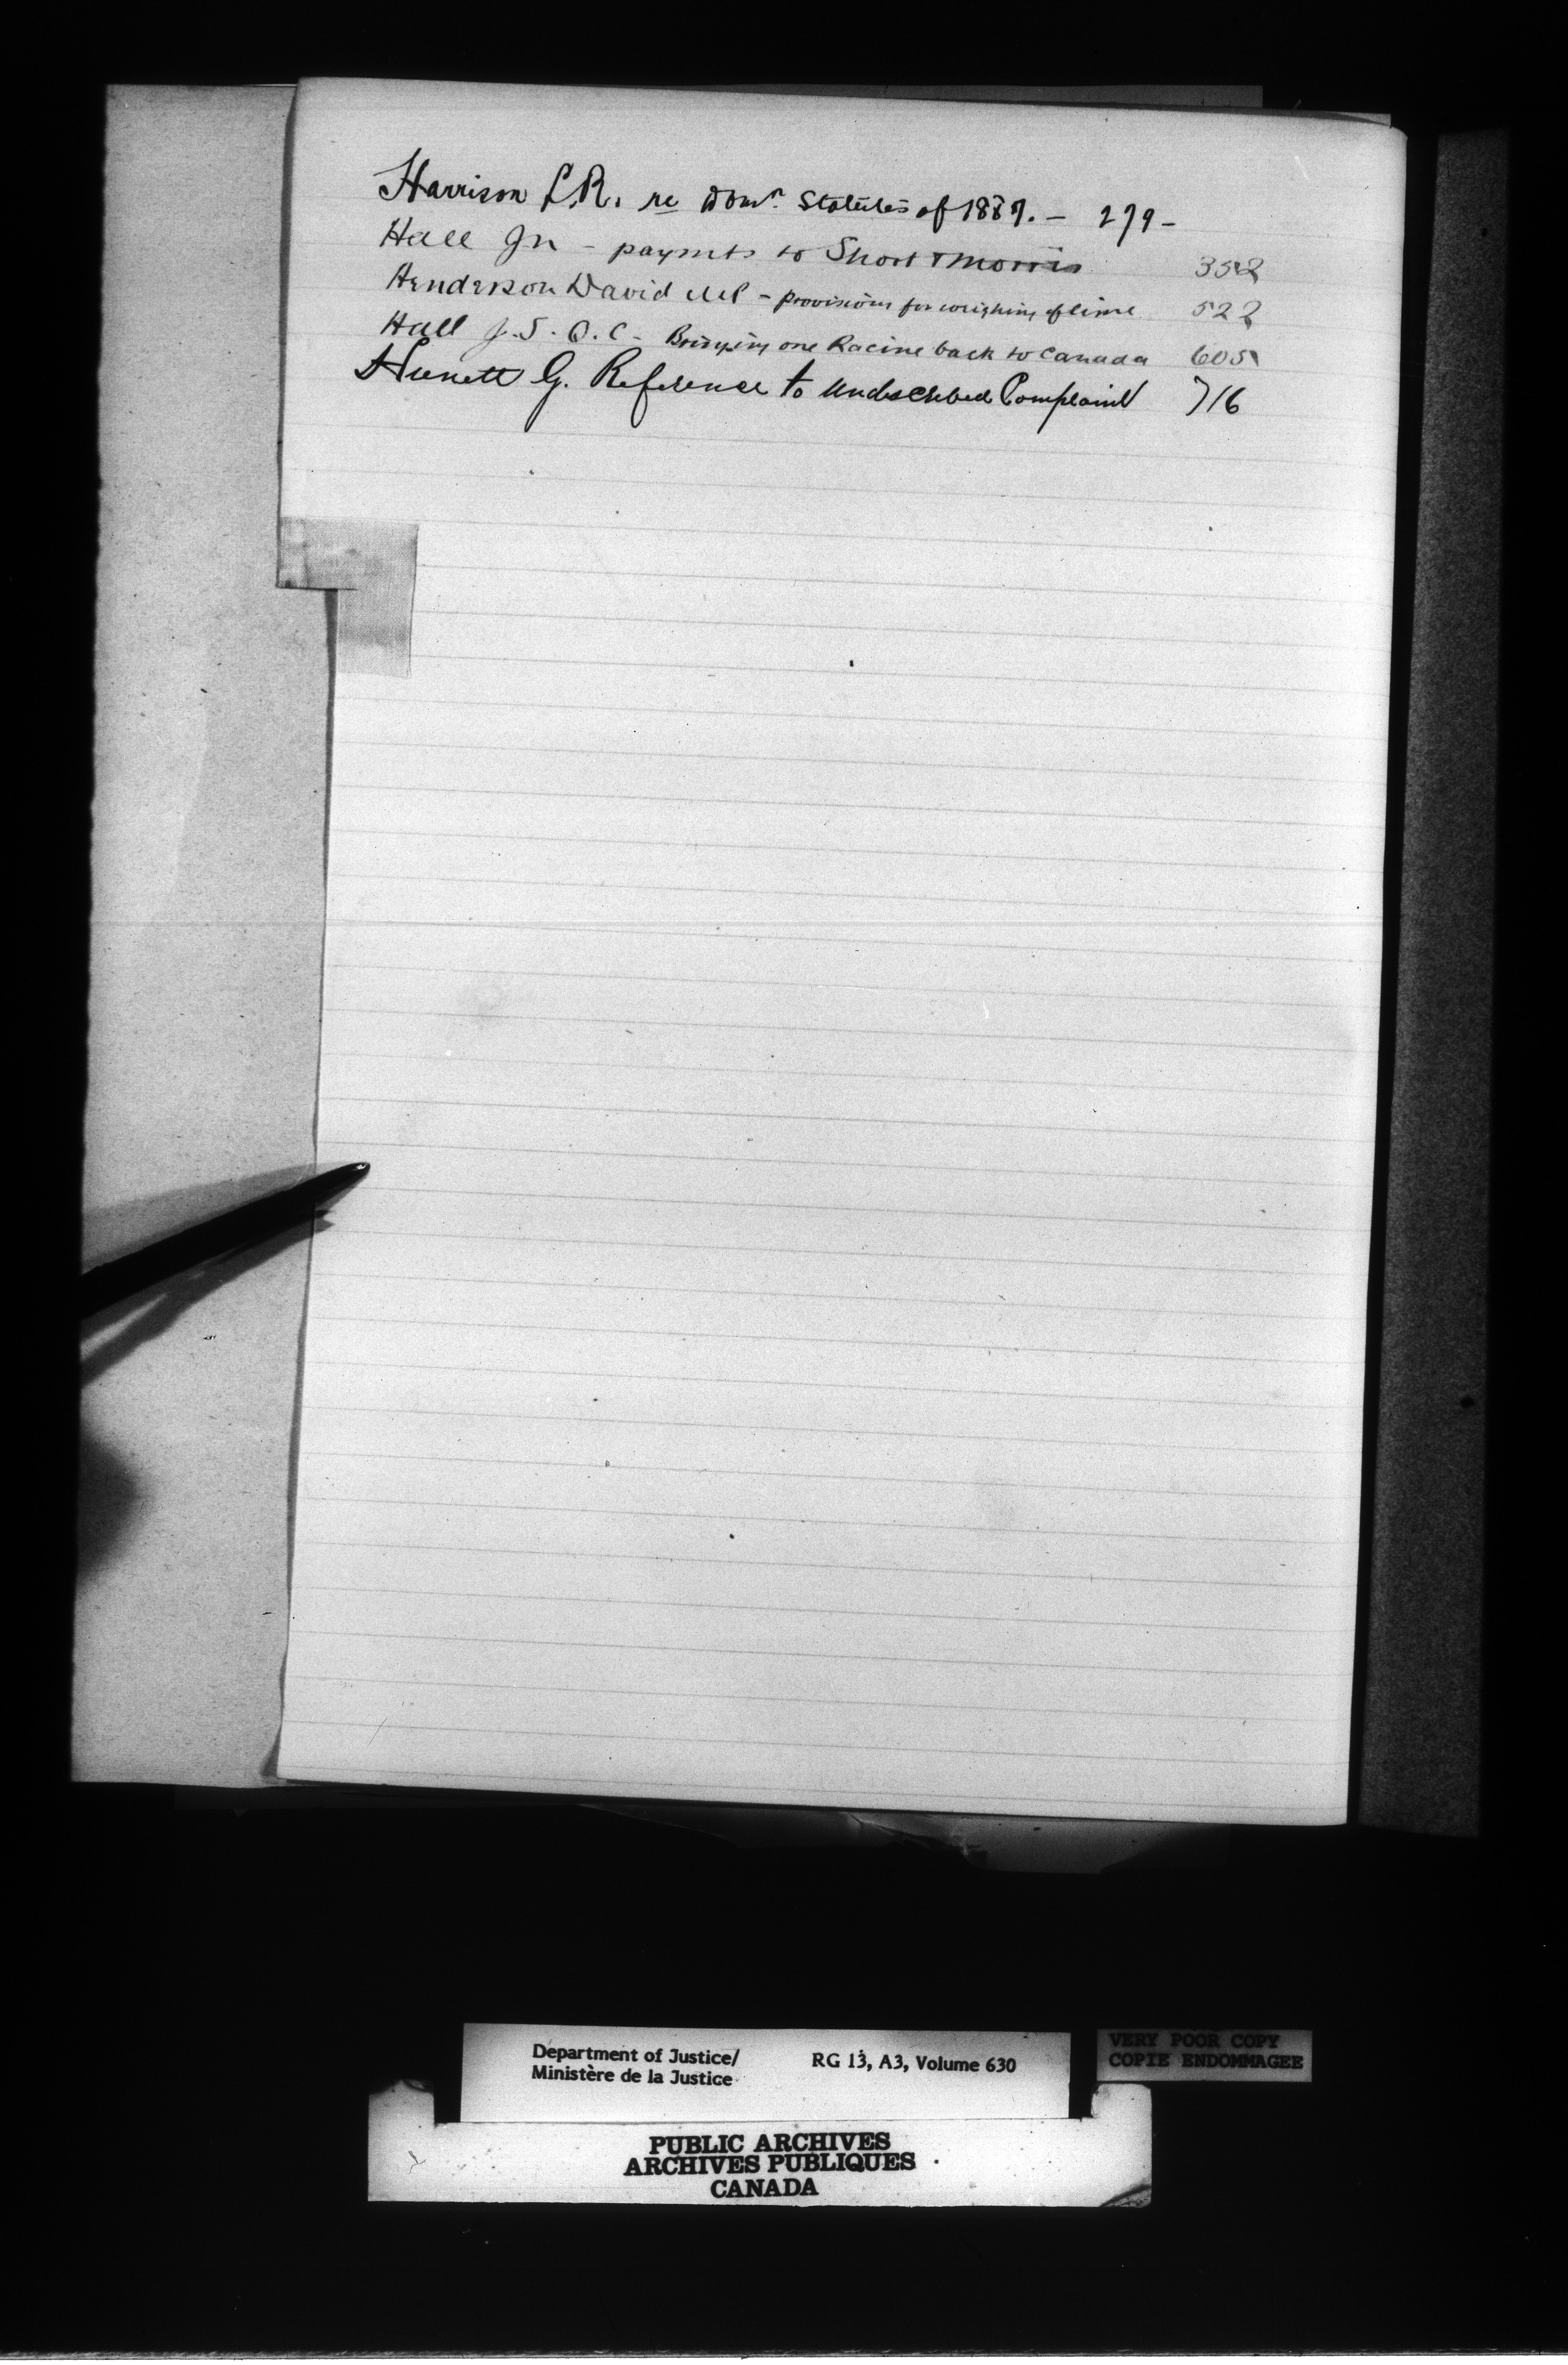 Harrison L.R. re Domn. Statutes of 1887. — 279 -
Hall Jn - paymts to Short & Morris 352
Henderson David MP - provisions for weighing of lime 522
Hall J. S. Q. C - Bringing one Racine back to Canada 605
G. Reference to undescribed Complaint 716
Department of Justice/ RG 13, A3, Volume 630
Ministère de la Justice
VERY POOR COPY
COPIE ENDOMMAGEE
PUBLIC ARCHIVES
ARCHIVES PUBLIQUES
CANADA